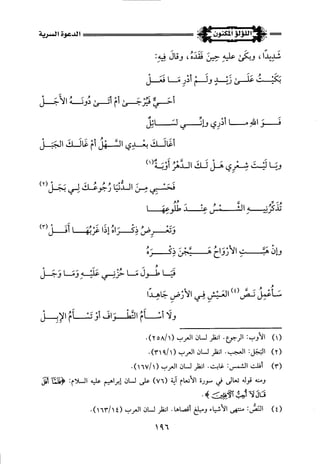 اللؤلؤ المكنون
الدعوة السرية
شديدًا، وبكى عليه حين فقده، وقال فيه:
بكيت على زيد ولم أدر ما فعل
أحي فيرجى أم أتى دونه الأجل
فو الله ما أدري وإني لسائل
أغالك بعدي السهل أم غالك الجبل
ويا ليت شعري هل لك الدهر أوبة (١)
فحسبي من الدنيا رجوعك لي بجل (٢)
تذكرنيه الشمس عند طلوعها
وتعرض ذكراه إذا غربها أفل (٣)
وإن هبت الأرواح هيجن ذكره
فيا طول ما حزني عليه وما وجل
سأعمل نص (٤) العيش في الأرض جاهدًا
ولا أسأم التطواف أو تسأم الإبل
(١) الأوب: الرجوع. انظر لسان العرب (٢٥٨/١).
(٢) البجل: العجب. انظر لسان العرب (٣١٩/١).
(٣) أفلت الشمس: غابت. انظر لسان العرب (١٦٧/١).
ومنه قوله تعالى في سورة الأنعام آية (٧٦) على لسان إبراهيم عليه السلام: ﴿فلما أفل
قال لا أحب الآفلين﴾.
(٤) النص: منتهى الأشياء ومبلغ أقصاها. انظر لسان العرب (١٦٣/١٤).
١٩٦